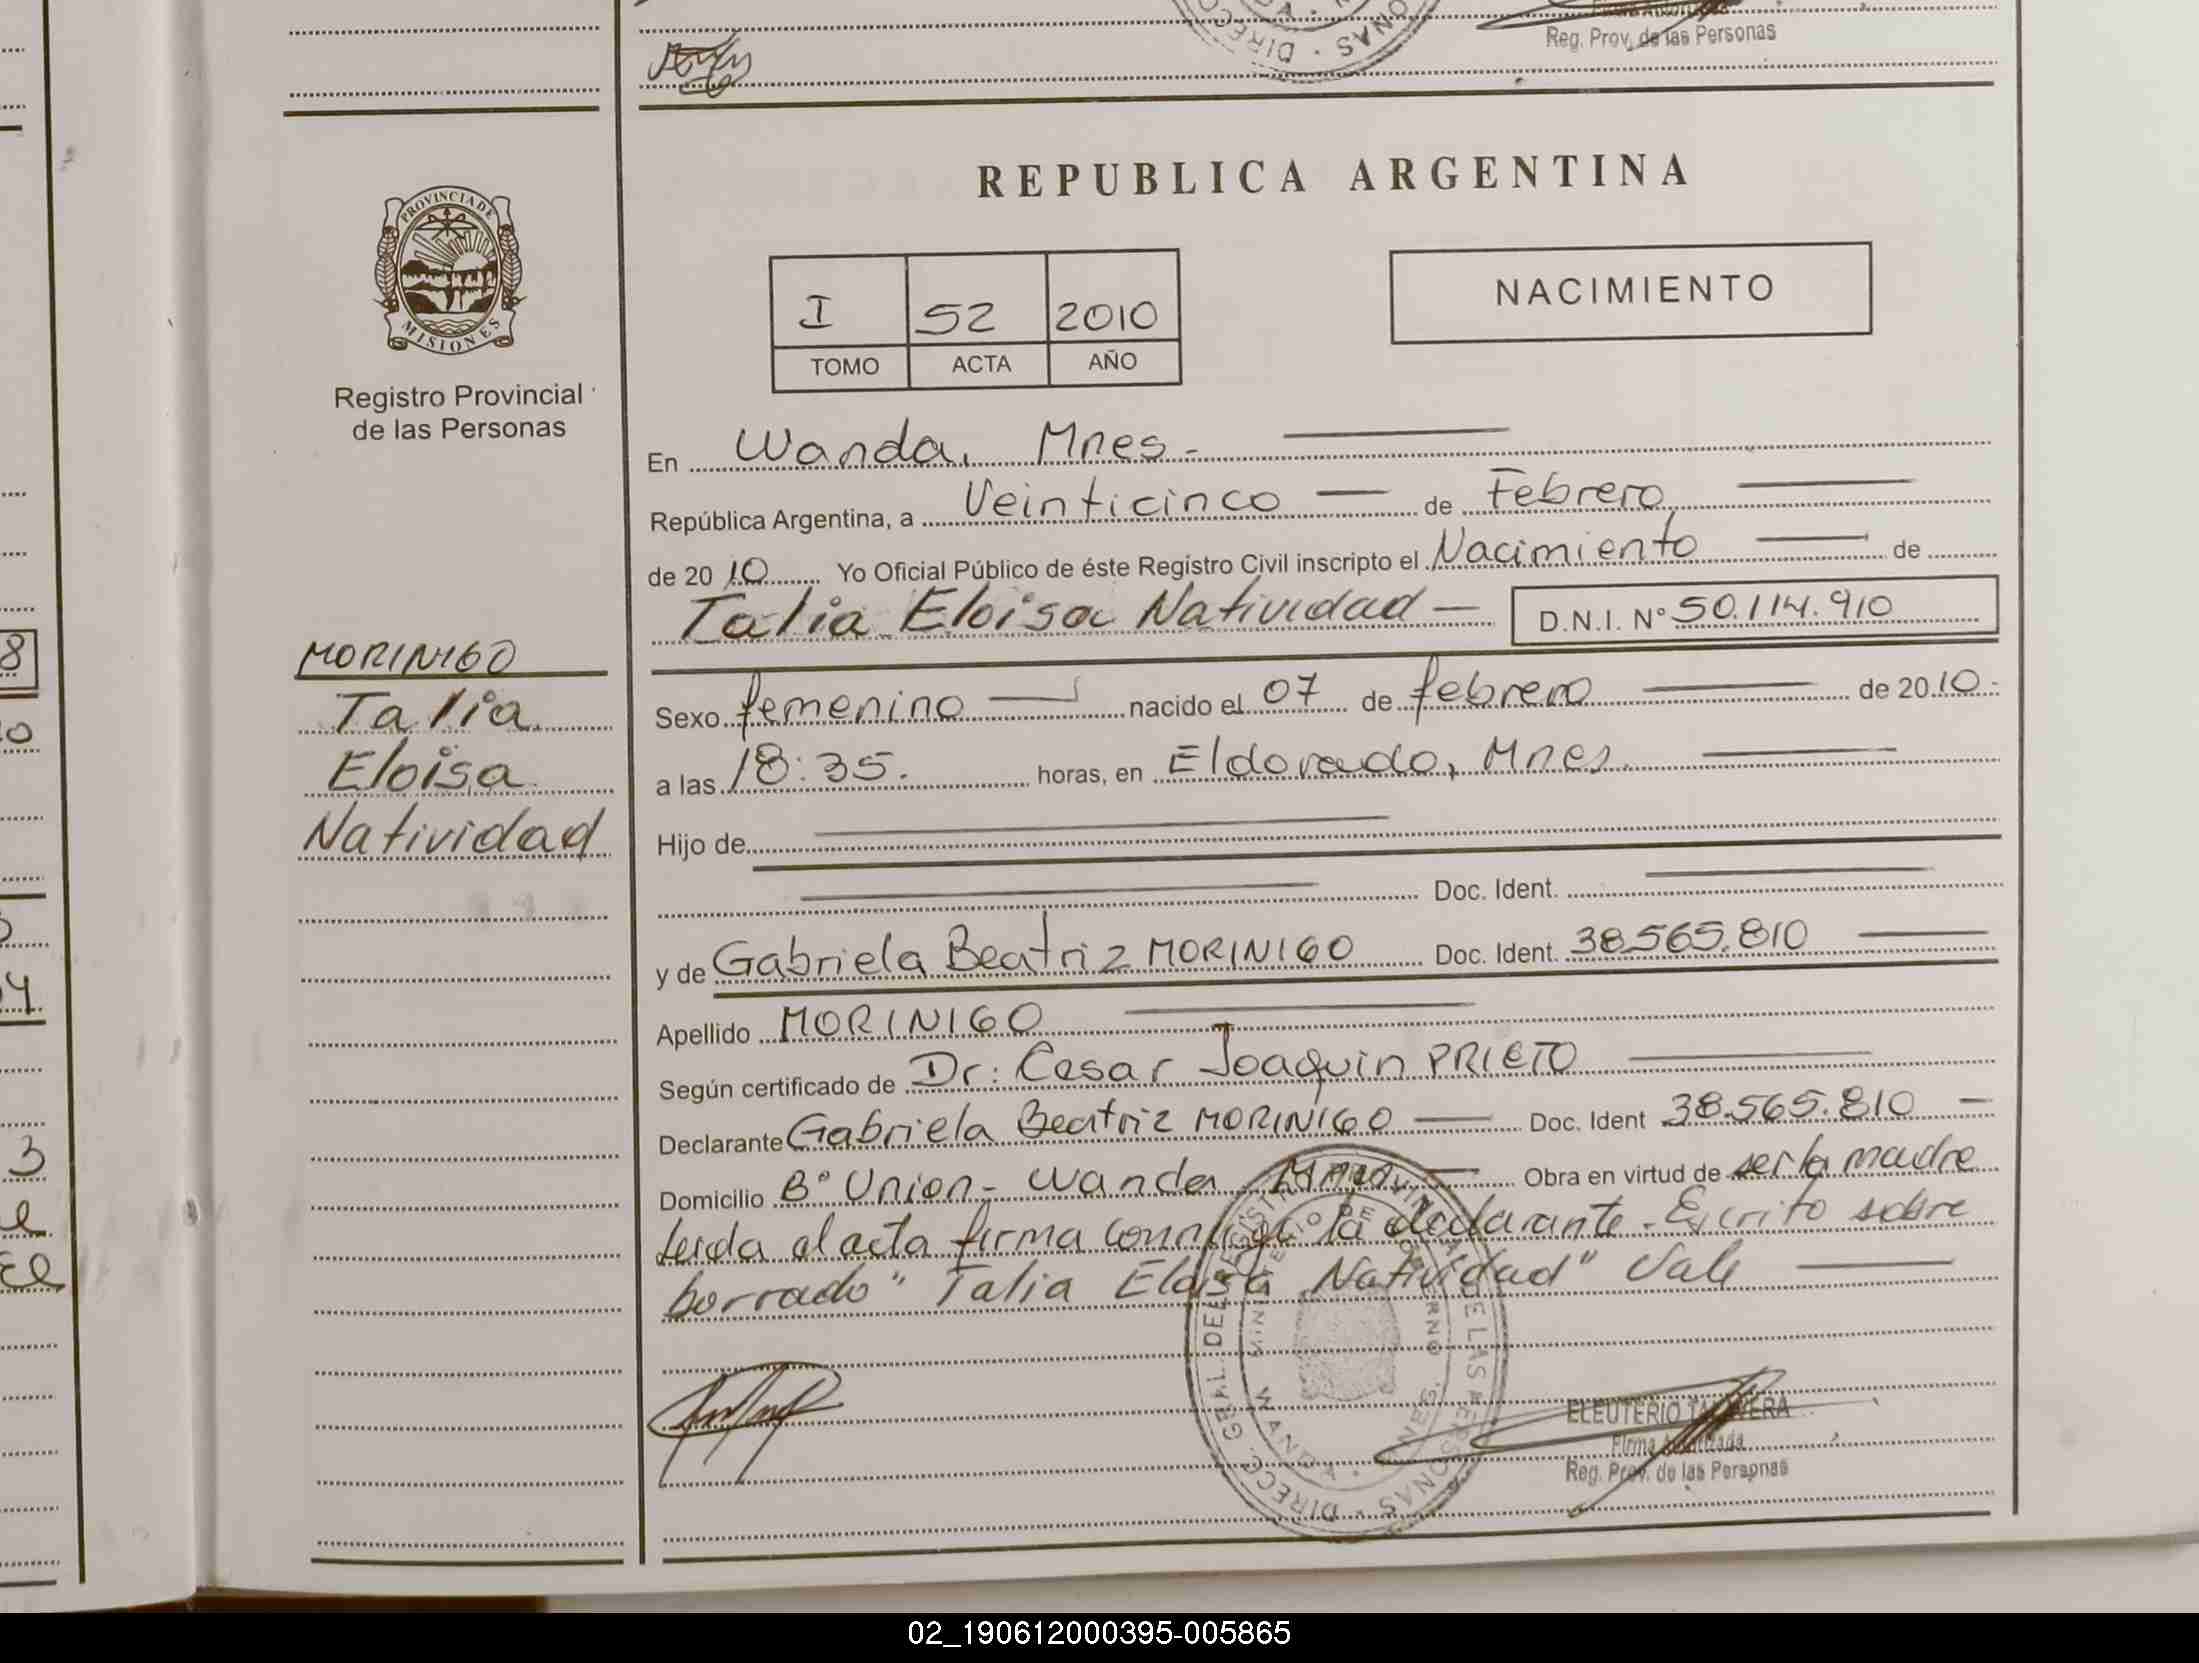 Reg. Prov. de las Personas
PROVINCIA DE
MISIONES
Registro Provincial
de las Personas
MORINIGO
Talia
Eloisa
Natividad
REPUBLICA ARGENTINA
I 52 2010
TOMO ACTA AÑO
NACIMIENTO
En Wanda, Mnes.-
República Argentina, a Veinticinco de Febrero
de 2010 Yo Oficial Público de éste Registro Civil inscripto el Nacimiento de
Talia Eloisa Natividad D.N.I. N° 50.114.910
Sexo femenino nacido el 07 de febrero de 2010.-
a las 18:35. horas, en Eldorado, Mnes.
Hijo de
Doc. Ident.
y de Gabriela Beatriz MORINIGO Doc. Ident. 38.565.810
Apellido MORINIGO
Según certificado de Dr: Cesar Joaquin PRIETO
Declarante Gabriela Beatriz MORINIGO Doc. Ident 38.565.810
Domicilio B° Union - Wanda Mnes Obra en virtud de ser la madre
Leida el acta firma conmigo la declarante. Escrito sobre
borrado "Talia Eloisa Natividad" Vale
DIRECC. GRAL. DEL REGISTRO PROVINCIAL DE LAS PERSONAS
MINISTERIO DE GOBIERNO
WANDA - MNES.
ELEUTERIO TALAVERA
Firma Autorizada
Reg. Prov. de las Personas
02_190612000395-005865